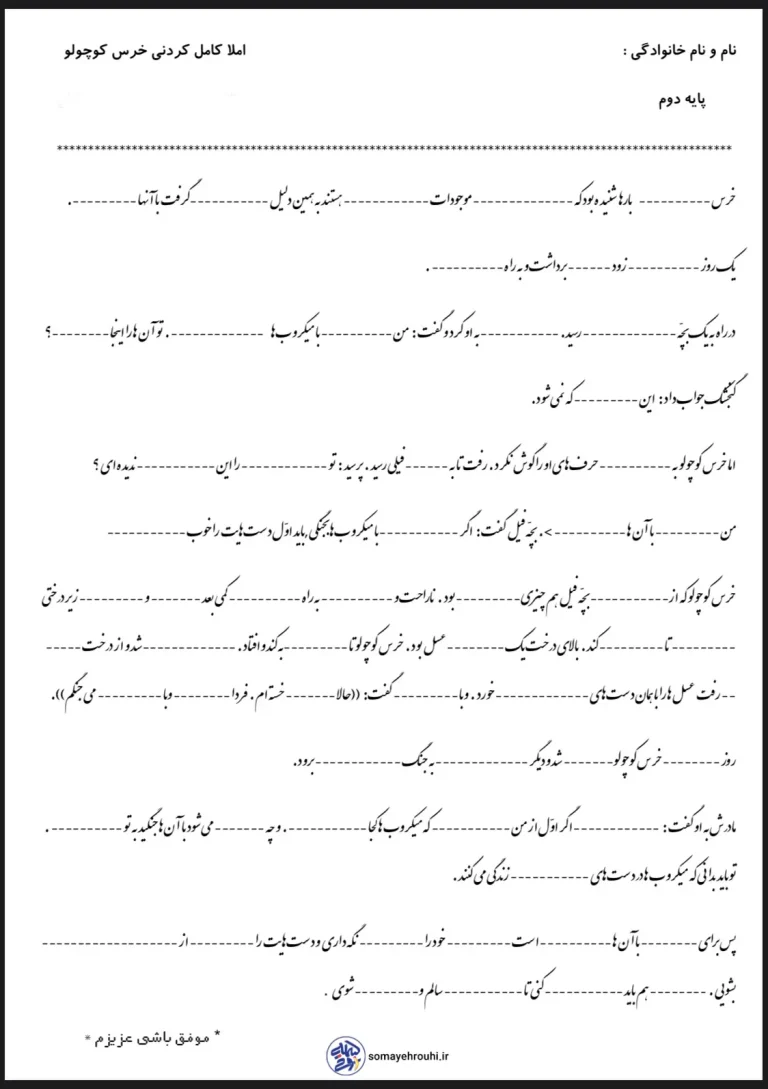 نام و نام خانوادگی :
املا کامل کردنی خرس کوچولو
پایه دوم
********************************************************************************************************
خرس---------- بارها شنیده بود که --------------موجودات------------هستند به همین دلیل -----------گرفت با آنها---------.
یک روز ----------زود------برداشت و به راه----------.
در راه به یک بچّه-------------رسید. -----------به او کرد و گفت: من ----------با میکروب ها -------------. تو آن ها را اینجا--------؟
گنجشک جواب داد: این---------که نمی شود.
اما خرس کوچولو به ----------حرف های او را گوش نکرد. رفت تا به ------فیلی رسید. پرسید: تو------------را این -----------ندیده ای؟
من---------با آن ها----------->. بچّه فیل گفت: اگر -----------با میکروب ها بجنگی، باید اوّل دست هایت را خوب-----------
خرس کوچولو که از-----------بچّه فیل هم چیزی---------بود. ناراحت و ----------به راه ----------کمی بعد-------و---------زیر درختی
---------تا---------کند. بالای درخت یک--------عسل بود. خرس کوچولو تا---------به کندو افتاد. -------------شد و از درخت-----
--رفت عسل ها را با همان دست های -------------خورد. و با---------گفت: ((حالا-------خسته ام. فردا --------و با---------می جنگم)).
روز --------خرس کوچولو-------شد و دیگر-------------به جنگ------------برود.
مادرش به او گفت: ------------اگر اوّل از من-----------که میکروب ها کجا-----------. و چه -------می شود با آن ها جنگید به تو----------.
تو باید بدانی که میکروب ها در دست های -----------زندگی می کنند.
پس برای--------با آن ها----------است---------خود را---------نگه داری و دست هایت را---------از-------------------
بشویی. --------هم باید-----------کنی تا-----------سالم و---------شوی .
* موفق باشی عزیزم *
somayehrouhi.ir